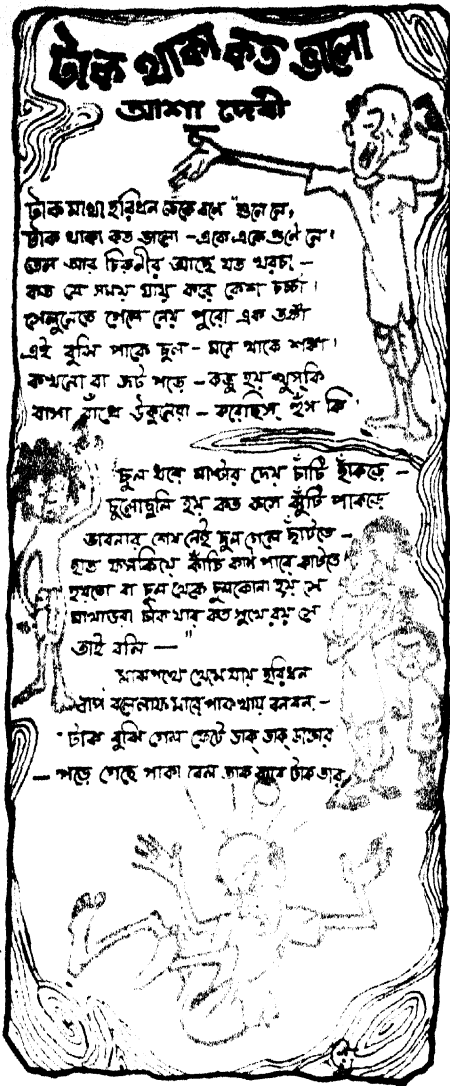 টাক থাকা কত ভালো
আশা দেবী
টাক মাথা হরিধন ডেকে বলে "শুনে নে,
টাক থাকা কত ভালো - একে একে গুনে নে।
তেল আর চিরুনীর আছে যত খরচা -
কত যে সময় যায় করে কেশ চর্চা।
সেলুনেতে গেলে নেয় পুরো এক তঙ্কা
এই বুঝি পাকে চুল - মনে থাকে শঙ্কা।
কখনো বা জট পড়ে - কভু হয় খুসকি
বাসা বাঁধে উকুনেরা - করেছিস হুঁস কি
চুল ধরে মাস্টার দেয় চাঁটি হাঁকড়ে -
চুলোচুলি হয় কত কসে ঝুঁটি পাকড়ে
ভাবনার শেষ নেই চুল গেলে ছাঁটতে -
হাত ফসকিয়ে কাঁচি কান পারে কাটতে
হয়তো বা চুল থেকে চুলকোনা হয় যে
মাথাভরা টাক যার কত সুখে রয় সে
তাই বলি — "
মাঝপথে থেমে যায় হরিধন
বাপ বলে লাফ মারে পাক খায় বনবন -
টাক বুঝি গেল ফেটে ডাক্ ডাক্ ডাক্তার
— পড়ে গেছে পাকা বেল তাক করে টাক তার